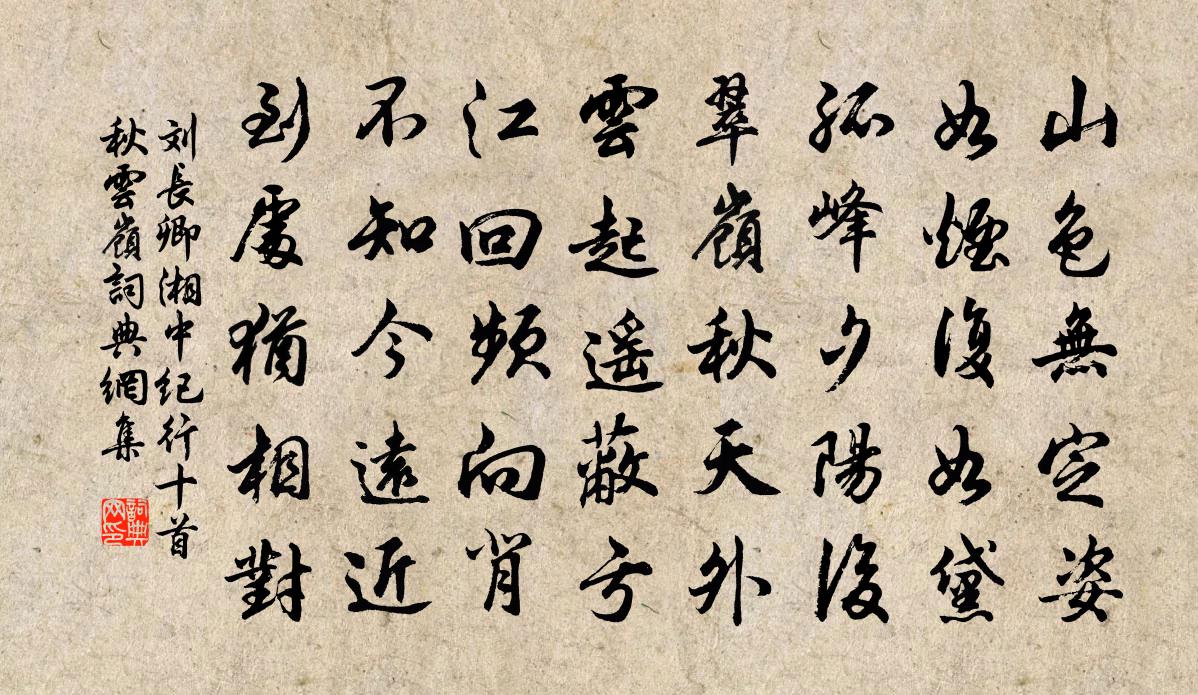 山色無定姿
如煙復如黛
孤峰夕陽後
翠嶺秋天外
雲起遥蔽亏
江回頻向背
不知今遠近
到處猶相對
刘長卿湘中纪行十首
秋雲嶺詞典網集
詞典
网印